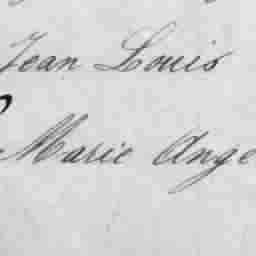 Jean Louis
Marie Ange